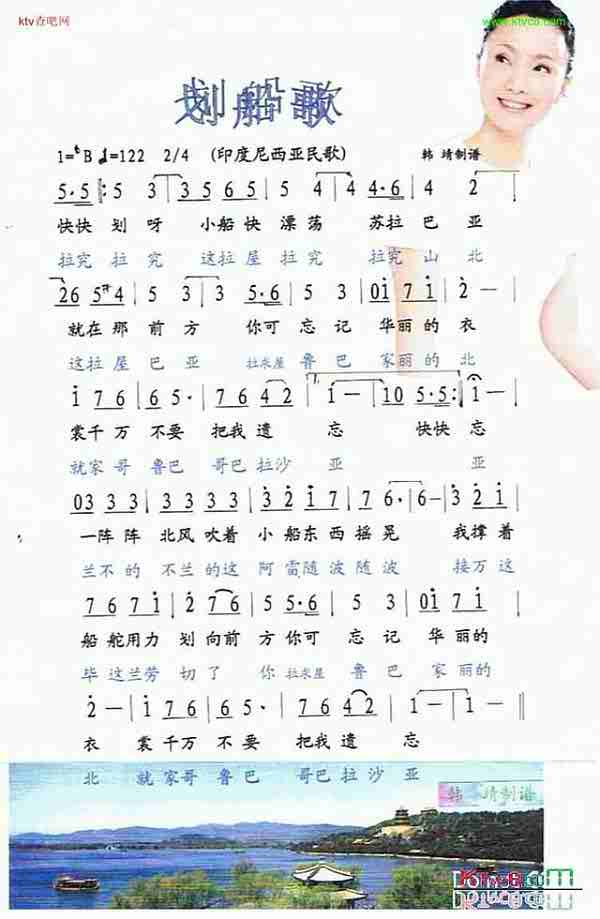 ktv查吧网 www.ktvc8.com
划船歌
1=♭B ♩=122 2/4 (印度尼西亚民歌) 韩 靖制谱
5·5 𝄆 5 3 | 3 5 6 5 | 5 4 | 4·6 4 | 2
快快 划 呀 小 船 快 漂 荡 苏 拉 巴 亚
拉究 拉 究 这 拉 屋 拉 究 拉 究 山 北
26 5 #4 | 5 3 | 3 5·6 | 5 3 | 0i 7 i | 2 — |
就在 那 前 方 你可 忘 记 华 丽 的 衣
这拉 屋 巴 亚 拉米屋 鲁 巴 家 丽 的 北
i 7 6 | 6 5· | 7 6 4 2 | i — | i 0 5·5 :| i — |
裳 千 万 不 要 把 我 遗 忘 快快 忘
就 家 哥 鲁 巴 哥 巴 拉 沙 亚 亚
03 3 3 | 3 3 3 3 | 3 2 i 7 | 7 6· | 6 — 3 2 i |
一 阵 阵 北 风 吹 着 小 船 东 西 摇 晃 我 撑 着
兰 不 的 不 兰 的 这 阿 雷 随 波 随 波 接 万 这
7 6 7 i | 2 7 6 | 5 5·6 | 5 3 | 0i 7 i |
船 舵 用 力 划 向 前 方 你 可 忘 记 华 丽 的
毕 这 兰 劳 切 了 你 拉米屋 鲁 巴 家 丽 的
2 — | i 7 6 | 6 5· | 7 6 4 2 | i — | i — ‖
衣 裳 千 万 不 要 把 我 遗 忘
北 就 家 哥 鲁 巴 哥 巴 拉 沙 亚
韩 靖制谱
Ktvc8.com